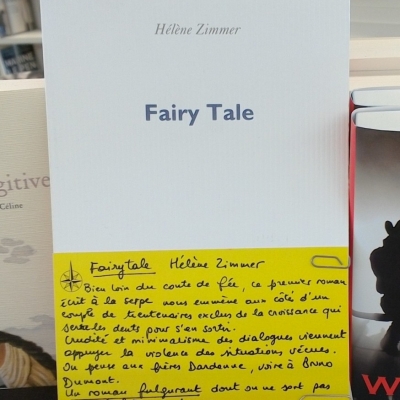 Hélène Zimmer
Fairy Tale
gitive
Céline
W
Fairytale Hélène Zimmer
Bien loin du conte de fée, ce premier roman
écrit à la serpe nous emmène aux côté d'un
couple de trentenaires exclus de la croissance qui
serre les dents pour s'en sortir.
Crudité et minimalisme des dialogues viennent
appuyer la violence des situations vécues.
On pense aux frères Dardenne, voire à Bruno
Dumont.
Un roman fulgurant dont on ne sort pas